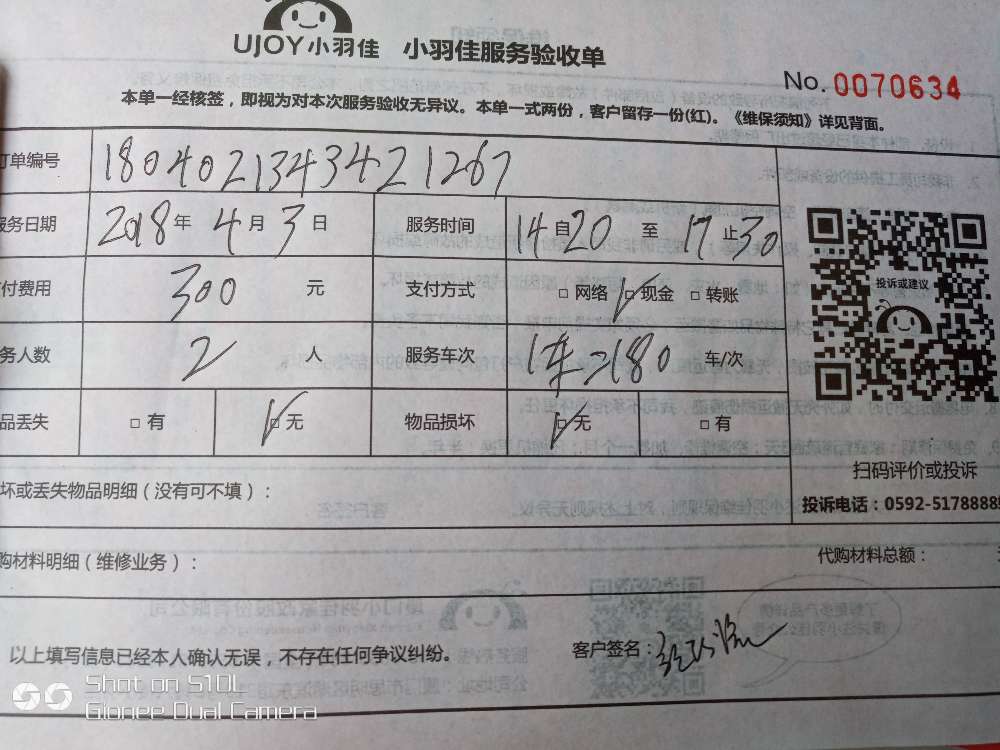 UJOY小羽佳 小羽佳服务验收单
No. 0070634
本单一经核签，即视为对本次服务验收无异议。本单一式两份，客户留存一份(红)。《维保须知》详见背面。
订单编号 1804021343421267
服务日期 2018年4月3日 服务时间 14自20至17止30
付费用 300 元 支付方式 □网络 □现金 □转账
务人数 2 人 服务车次 1车=180 车/次
品丢失 □有 □无 物品损坏 □无 □有
投诉或建议
扫码评价或投诉
投诉电话：0592-5178888
坏或丢失物品明细（没有可不填）：
购材料明细（维修业务）： 代购材料总额：
以上填写信息已经本人确认无误，不存在任何争议纠纷。 客户签名：
Shot on S10L
Gionee Dual Camera